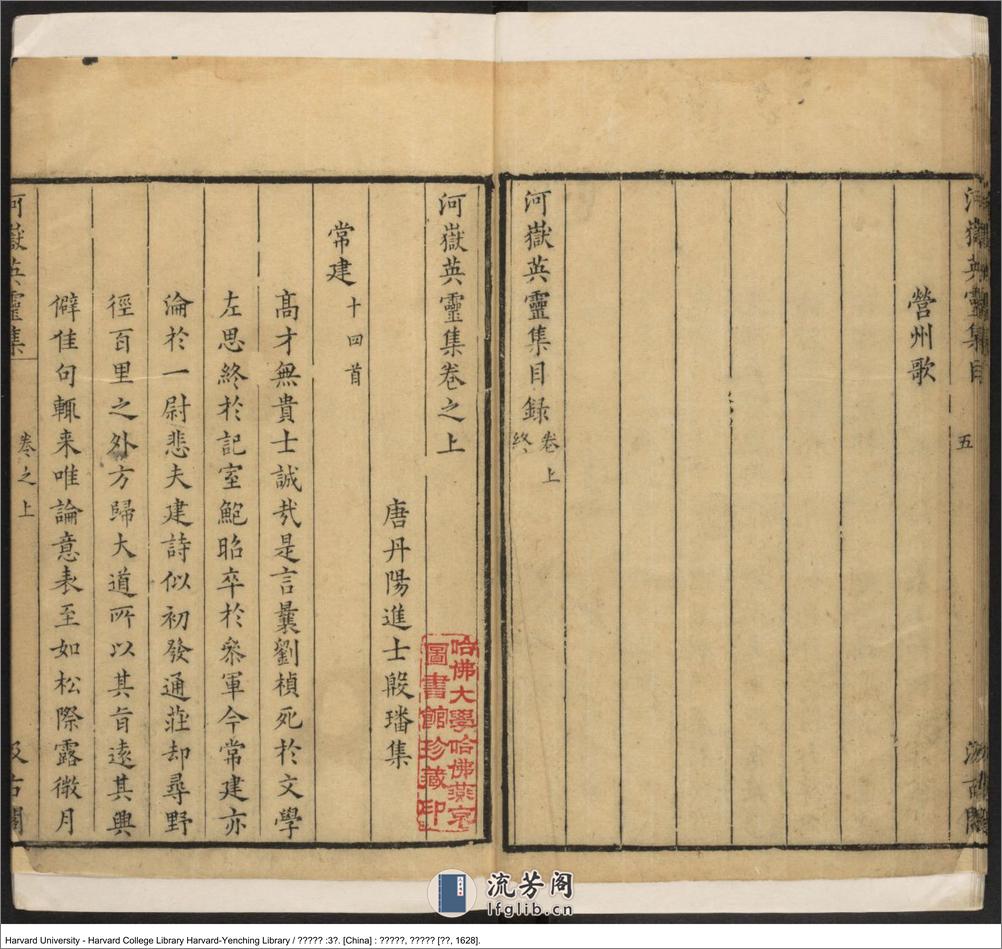 河嶽英靈集目
五
汲古閣
營州歌
河嶽英靈集目録卷上終
河嶽英靈集卷之上
唐丹陽進士殷璠集
常建十四首
髙才無貴士誠㢤是言曩劉楨死於文學
左思終於記室鮑昭卒於叅軍今常建亦
淪於一尉悲夫建詩似初發通莊却尋野
徑百里之外方歸大道所以其旨遠其興
僻佳句輒来唯論意表至如松際露微月
河嶽英靈集
卷之上
汲古閣
哈佛大學哈佛燕京
圖書館珍藏印
流芳阁
lfglib.cn
Harvard University - Harvard College Library Harvard-Yenching Library / ????? :3?. [China] : ?????, ????? [??, 1628].